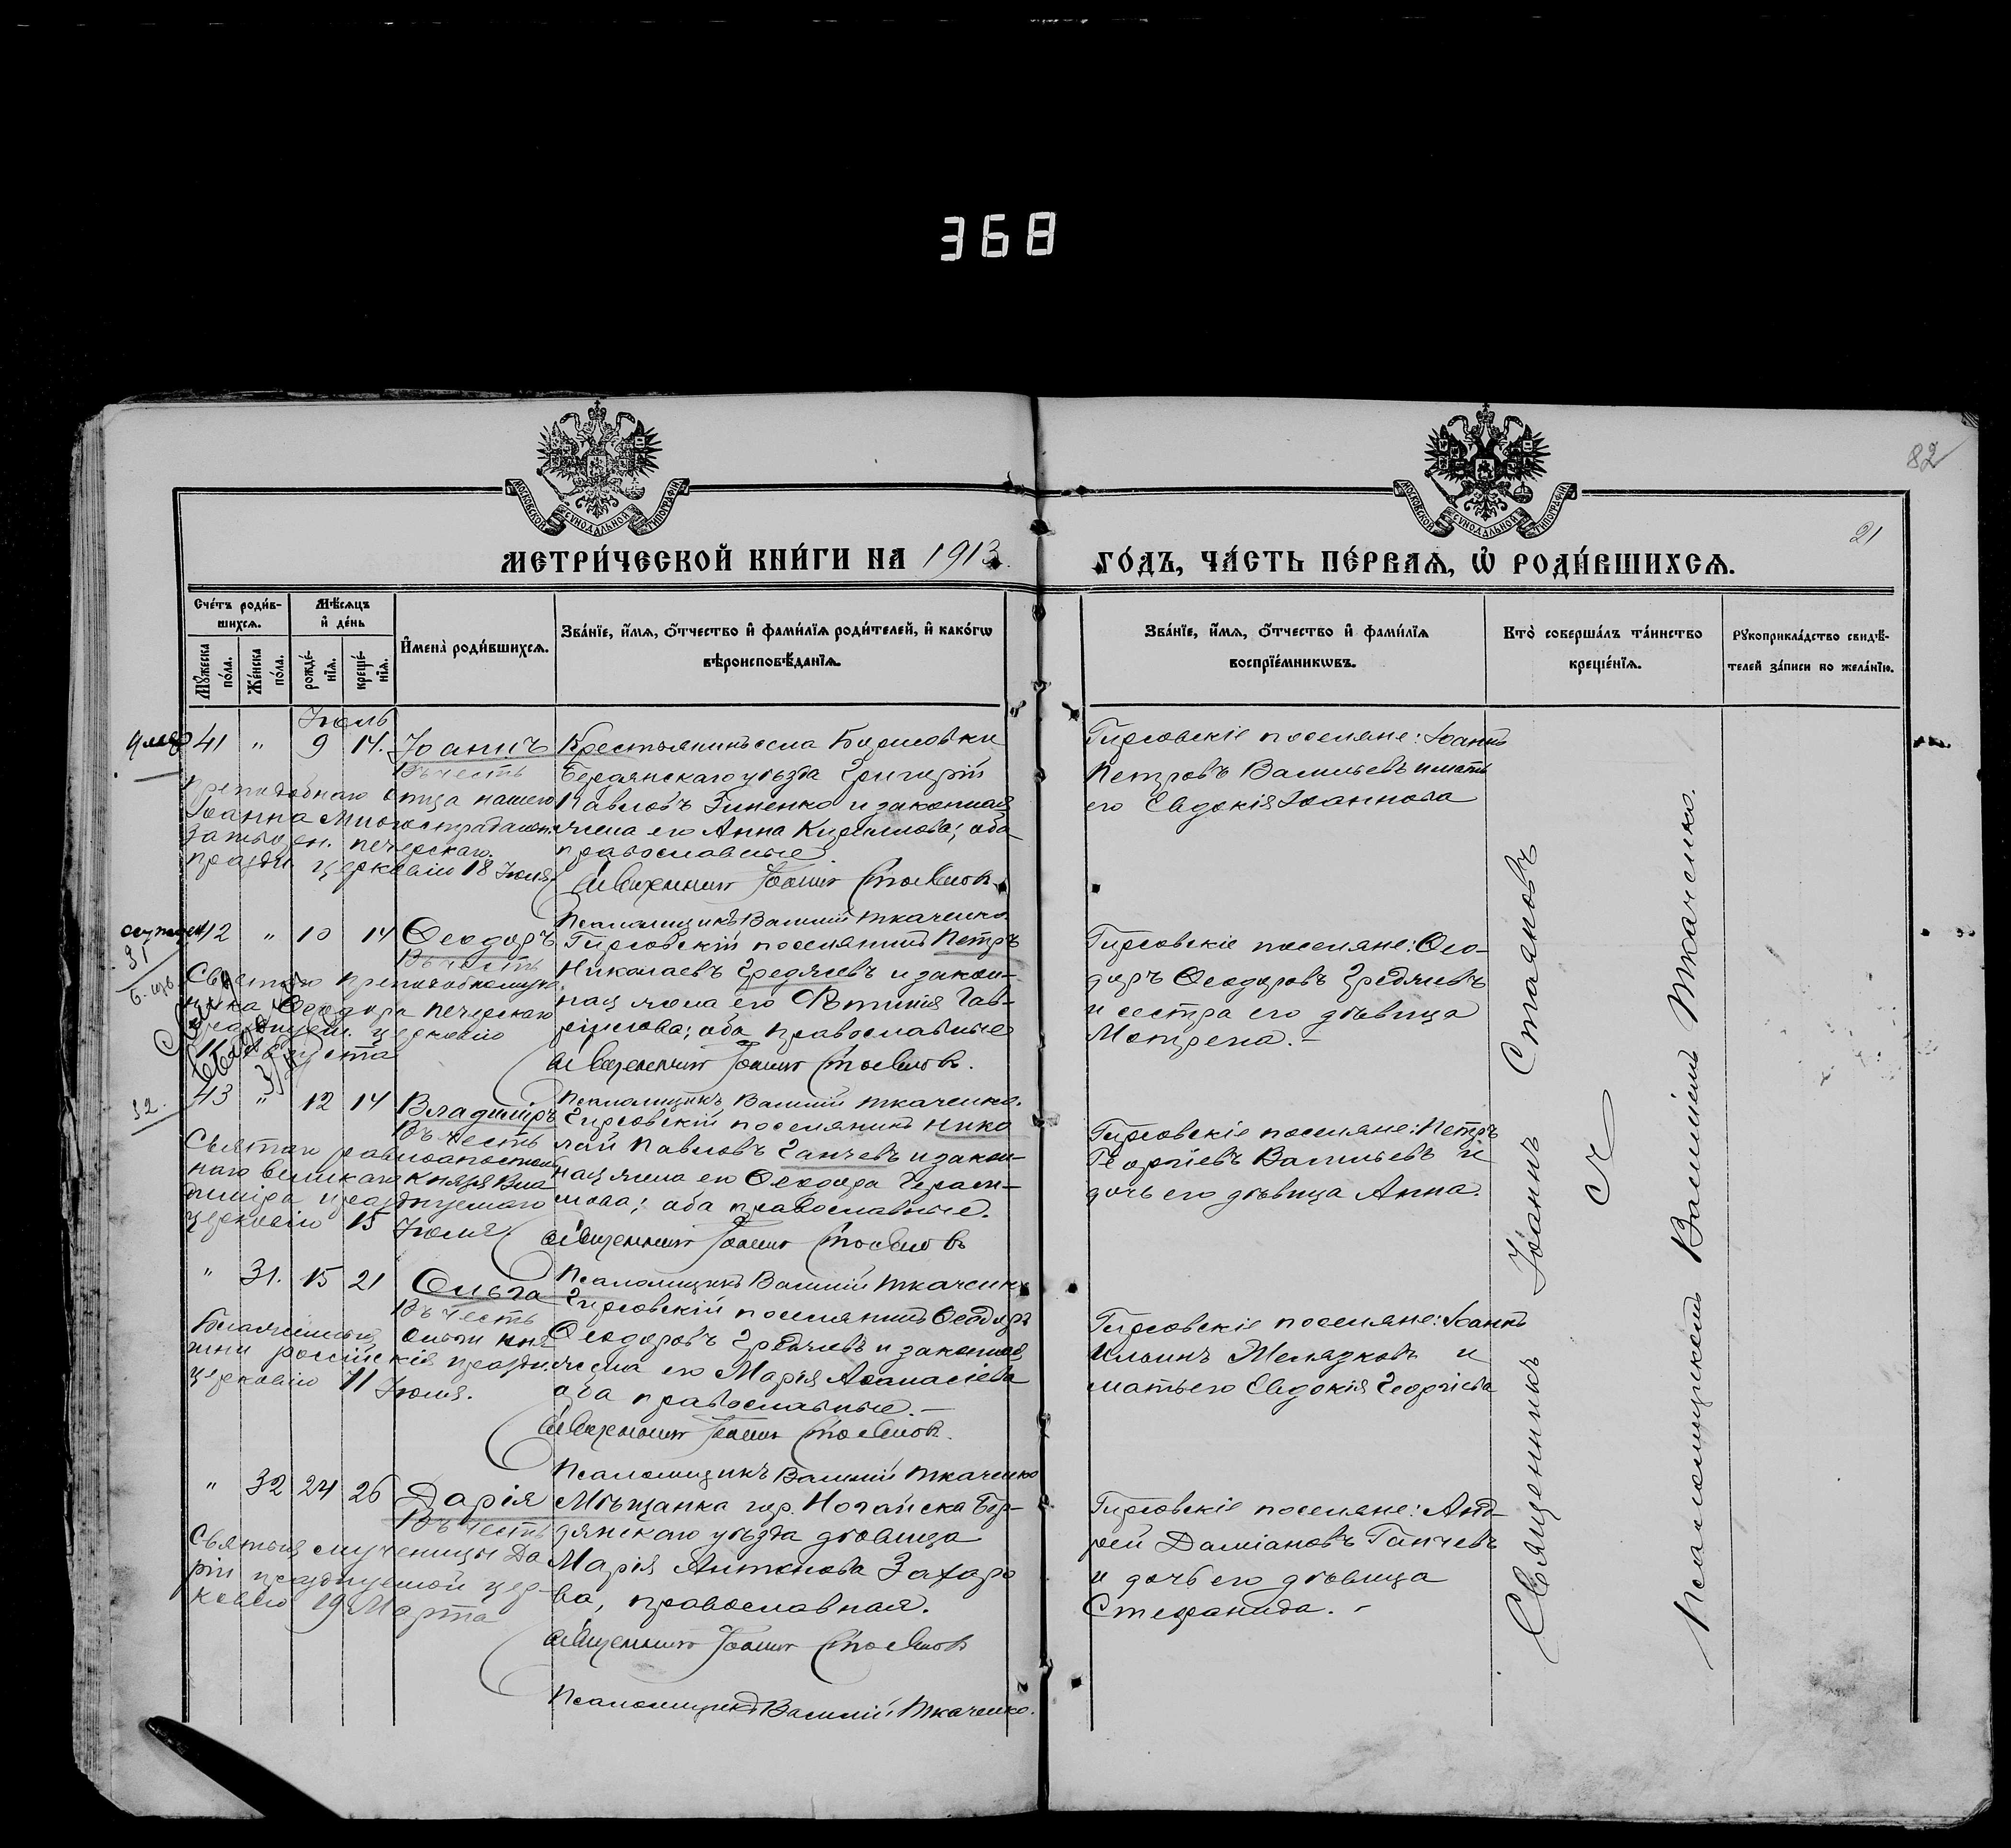 368
82
МОСКОВСКОЙ СѴНОДАЛЬНОЙ ТИПОГРАФІИ
МОСКОВСКОЙ СѴНОДАЛЬНОЙ ТИПОГРАФІИ
21
МЕТРИ́ЧЕСКОЙ КНИ́ГИ НА 1913. ГО́ДЪ, ЧА́СТЬ ПЕ́РВАѦ, Ѽ РОДИ́ВШИХСѦ.
Сче́тъ роди́в-
шихсѧ.
Мꙋ́жеска по́ла.
Же́нска по́ла.
Мѣ́сѧцъ
и҆ де́нь
рожде́-нїѧ.
креще́-нїѧ.
И҆мена̀ роди́вшихсѧ.
Зва́нїе, и҆́мѧ, о҆́тчество и҆ фами́лїѧ роди́телей, и҆ како́гѡ
вѣроисповѣ́данїѧ.
Зва́нїе, и҆́мѧ, о҆́тчество и҆ фами́лїѧ
воспрїе́мникѡвъ.
Кто̀ соверша́лъ та́инство
креще́нїѧ.
Рꙋкоприкла́дство свидѣ́-
телей за́писи по жела́нїю.
Іюль
41 " 9 14. Іоаннъ
Въ честь
преподобнаго отца нашего
Іоанна многострадальн.
затворн. печерскаго.
праздн. церковію 18 Іюля
Крестьянинъ села Борисовки
Бердянскаго уѣзда Григорій
Павловъ Зиненко и законная
жена его Анна Кириллова; оба
православные.
Священникъ Іоаннъ Стояновъ.
Псаломщикъ Василій Ткаченко.
Гирсовскіе поселяне: Іоаннъ
Петровъ Васильевъ и мать
его Евдокія Іоаннова
31
42 " 10 14 Ѳеодоръ
Въ честь
Ѳеодора печерскаго
празднуем. церковію
11 Августа
Гирсовскій поселянинъ Петръ
Николаевъ Гредячевъ и закон-
ная жена его Фотинія Гав-
ріилова; оба православные
Священникъ Іоаннъ Стояновъ.
Псаломщикъ Василій Ткаченко.
Гирсовскіе поселяне: Ѳео-
доръ Ѳеодоровъ Гредячевъ
и сестра его дѣвица
Мотрена. –
32.
43 " 12 14 Владиміръ
Въ честь
Святаго равноапостоль
наго великаго Князя Вла-
диміра празднуемаго
церковію 15 Іюля
Гирсовскій поселянинъ Нико
лай Павловъ Ганчевъ и закон-
ная жена его Ѳеодора Герас-
мова; оба православные.
Священникъ Іоаннъ Стояновъ
Псаломщикъ Василій Ткаченко
Гирсовскіе поселяне: Петръ
Георгіевъ Васильевъ и
дочь его дѣвица Анна.
" 31. 15 21 Ольга
Въ честь
Ольги кня
гини россійскія праздн.
церковію 11 Іюля.
Гирсовскій поселянинъ Ѳеодоръ
Ѳеодоровъ Гредячевъ и законная
жена его Марія Аѳанасіева
оба православные. –
Священникъ Іоаннъ Стояновъ.
Псаломщикъ Василій Ткаченко
Гирсовскіе поселяне: Іоаннъ
Ильинъ Желязковъ и
мать его Евдокія Георгіева
" 32 24 26 Дарія
Въ честь
Святыя мученицы Да
ріи празднуемой цер-
ковію 19 Марта
Мѣщанка гор. Ногайска Бер-
дянскаго уѣзда дѣвица
Марія Антонова Захаро
ва, православная.
Священникъ Іоаннъ Стояновъ
Псаломщикъ Василій Ткаченко.
Гирсовскіе поселяне: Анд-
рей Даміановъ Ганчевъ
и дочь его дѣвица
Стефанида. –
Священникъ Іоаннъ Стояновъ
Псаломщикъ Василій Ткаченко.